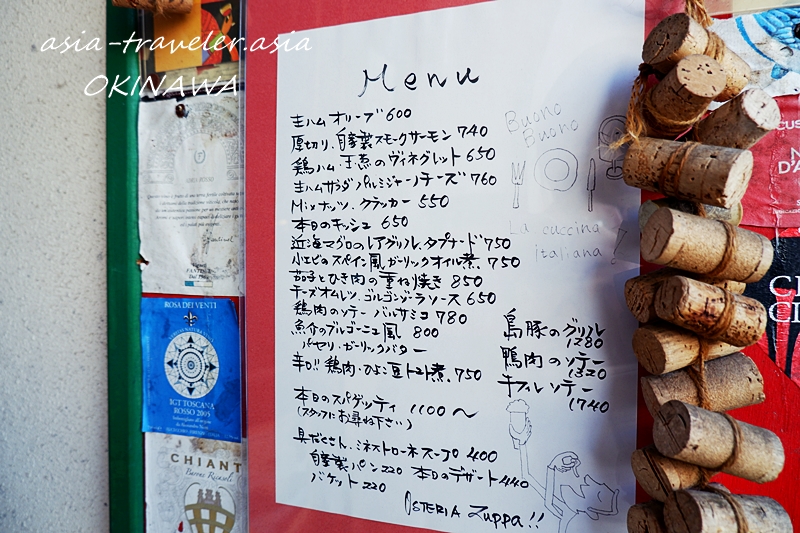 asia-traveler.asia
OKINAWA
Menu
生ハム オリーブ 600
厚切り、自家製スモークサーモン 740
鶏ハム・玉葱のヴィネグレット 650
生ハムサラダ パルミジャーノチーズ 760
Mixナッツ、クラッカー 550
本日のキッシュ 650
近海マグロのレアグリル、タプナード 750
小エビのスペイン風、ガーリックオイル煮 750
茄子とひき肉の重ね焼き 850
チーズオムレツ、ゴルゴンゾーラソース 650
鶏肉のソテー バルサミコ 780
魚介のブルゴーニュ風 800
パセリ・ガーリックバター
辛口!! 鶏肉・ひよこ豆トマト煮 750
本日のスパゲッティ 1100〜
(スタッフにお尋ね下さい)
具だくさん、ミネストローネスープ 400
自家製パン 220 本日のデザート 440
バケット 220
OSTERIA Zuppa!!
Buono
Buono
La cuccina
italiana!
島豚のグリル
1280
鴨肉のソテー
1320
牛フィレソテー
1740
ROSA DEI VENTI
IGT TOSCANA
ROSSO 2005
CHIANT
Barone Ricasoli